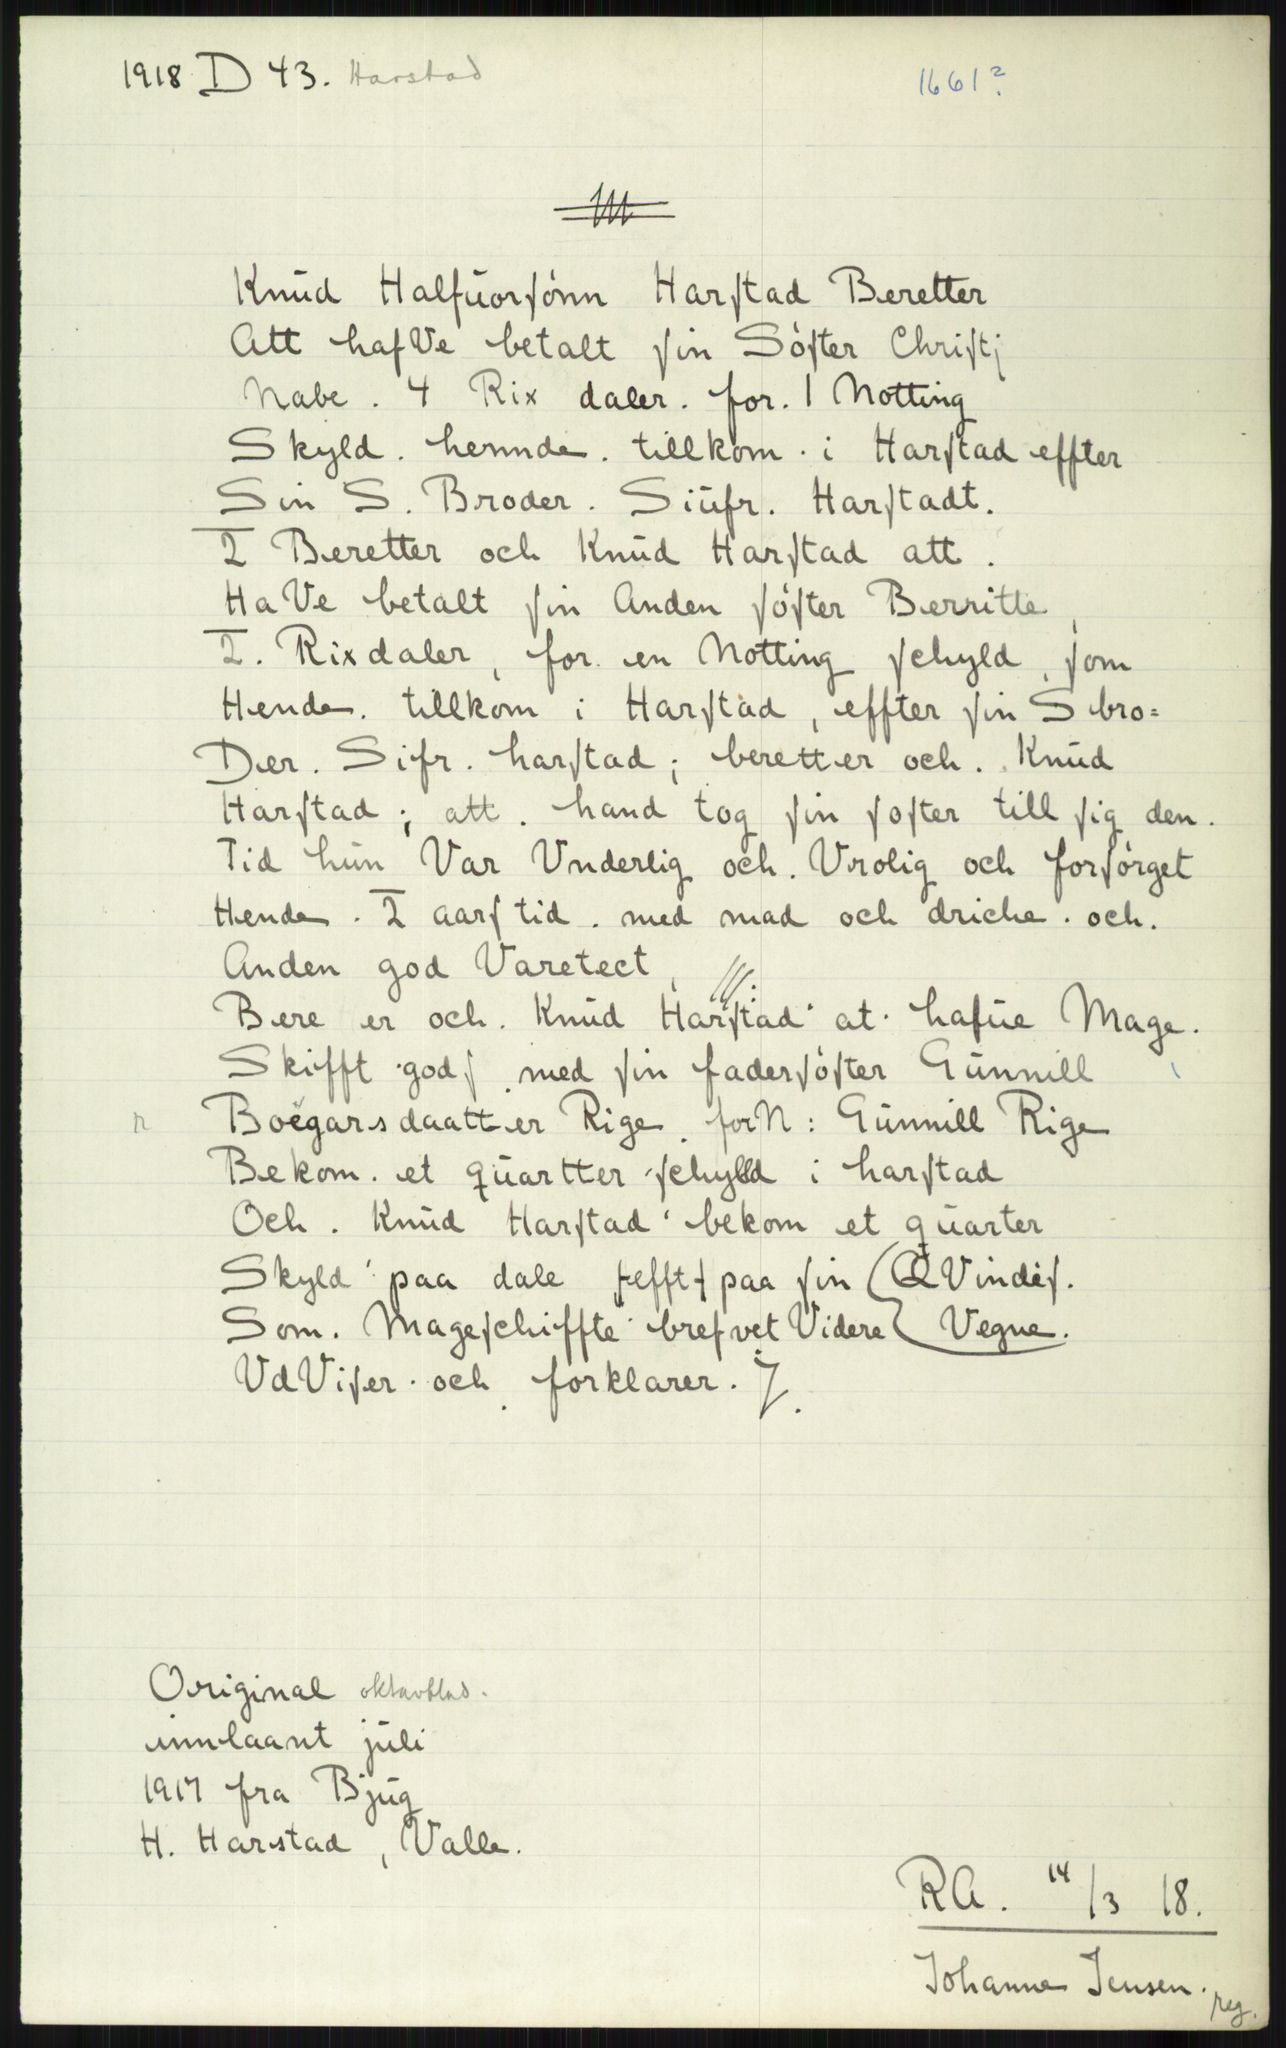 1918 D 43. Harstad
1661?
Knud Halfuorſønn Harſtad Beretter
Att hafVe betalt ſin Søſter Chriſtj
Nabe . 4 Rix daler . for . 1 Notting
Skyld . hennde . tillkom . i Harſtad effter
Sin S. Broder . Siufr . Harſtadt .
2 Beretter och Knud Harſtad att .
HaVe betalt ſin Anden ſøſter Berritte ,
2. Rixdaler , for en Notting ſchyld , ſom
Hende . tillkom i Harſtad , effter ſin S bro=
Der . Sifr . harſtad ; beretter och . Knud
Harſtad ; att . hand tog ſin ſoſter till ſig den .
Tid hun Var Vnderlig och . Vrolig och forſørget
Hende . 2 aarſ tid . med mad och driche . och .
Anden god Varetect ,
Bere er och . Knud Harſtad at hafue Mage .
Skifft godſ med ſin faderſøſter Gunnill
r Boëgarsdaatter Rige . forN : Gunnill Rige
Bekom . et quartter ſchylld i harſtad
Och . Knud Harſtad bekom et quarter
Skyld paa dale ſefftſ paa ſin QVindeſ .
Som . Mageſchiffte brefvet Videre Vegne .
VdViſer . och forklarer .
Original oktavblad .
innlaant juli
1917 fra Bjug
H. Harstad , Valle .
RA. 14/3 18.
Johanne Jensen .
reg.